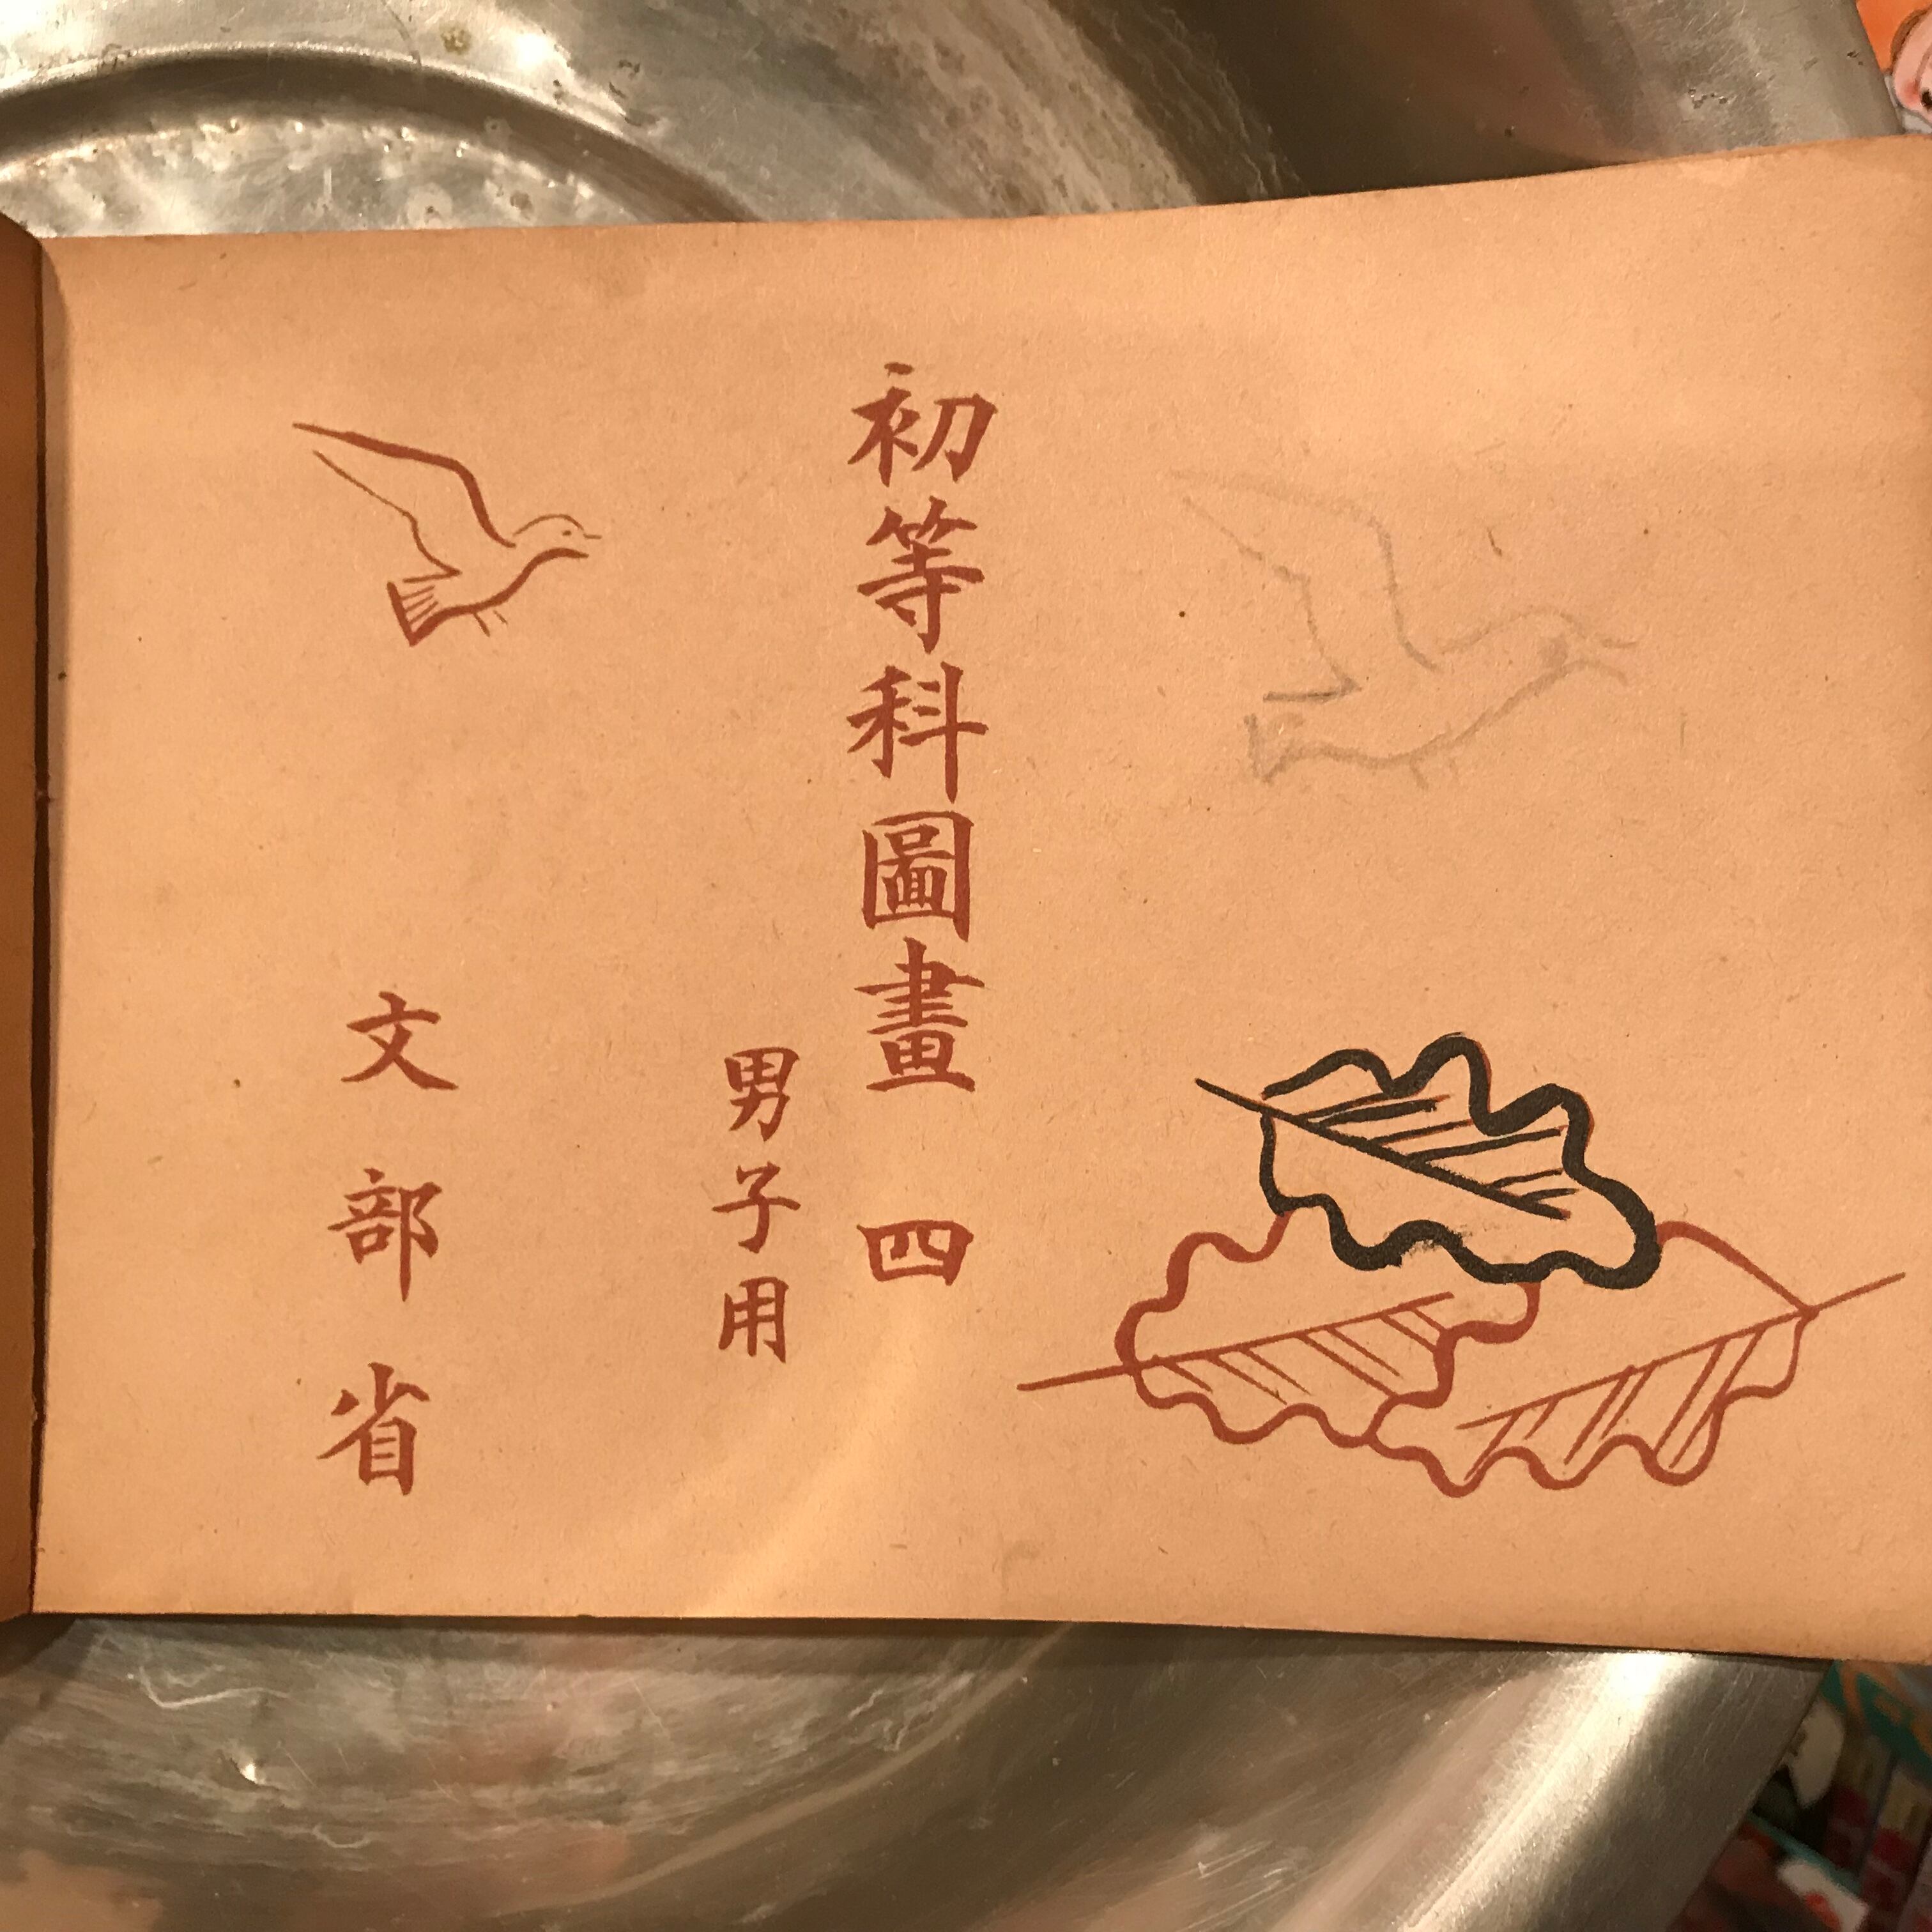 初等科圖畫 四
男子用
文部省